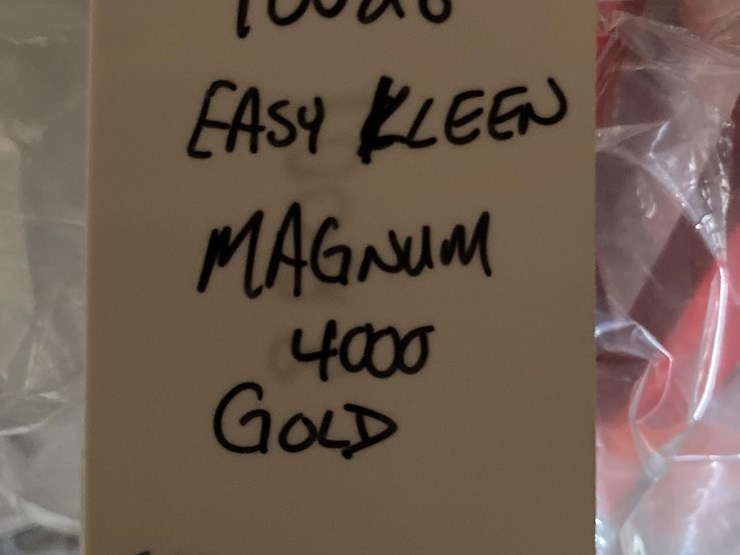 EASY KLEEN
MAGNUM
4000
GOLD